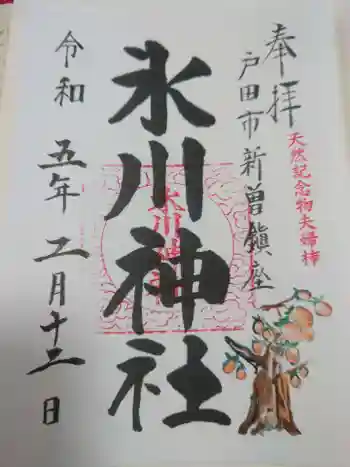 奉拝
戸田市新曽鎮座
天然記念物夫婦柿
氷川神社
氷川神社
令和五年二月十二日